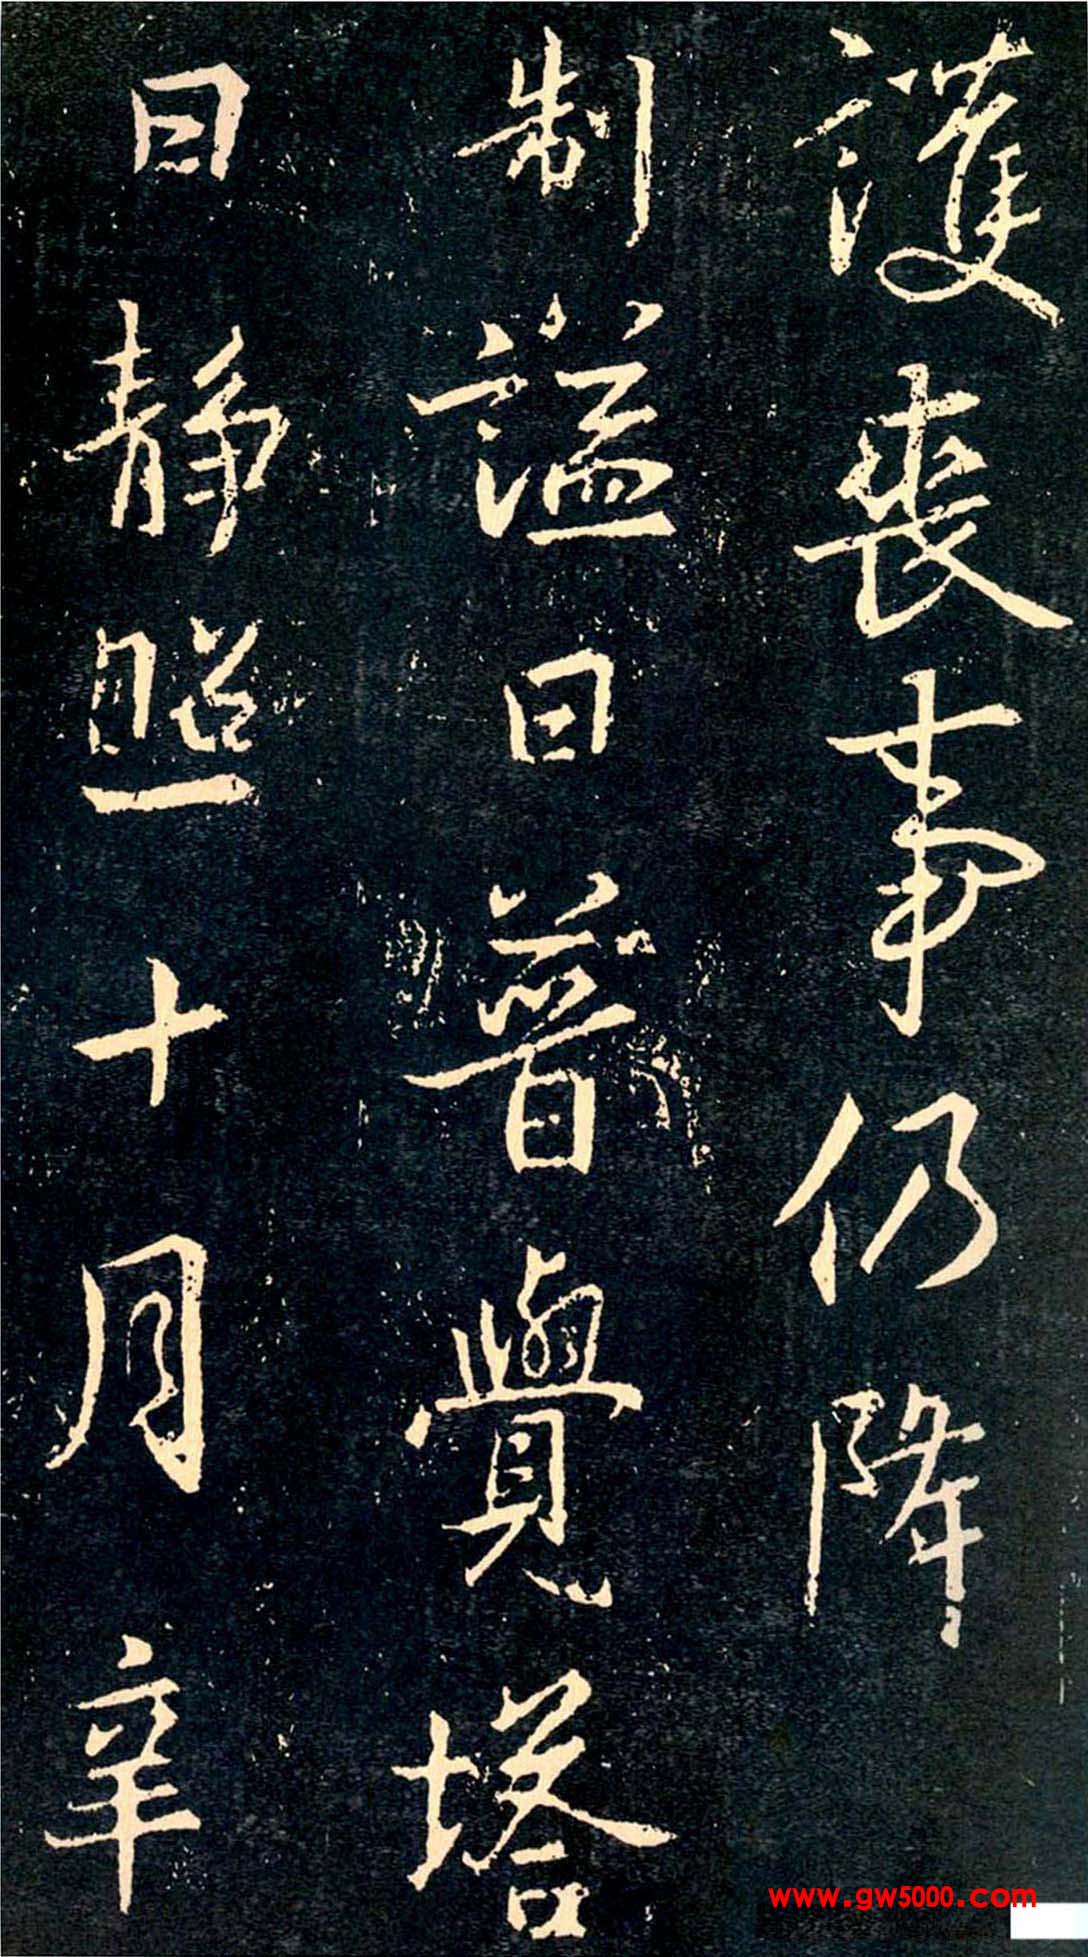 護喪事仍降
制謚曰普覺塔
曰靜照十月辛
www.gw5000.com